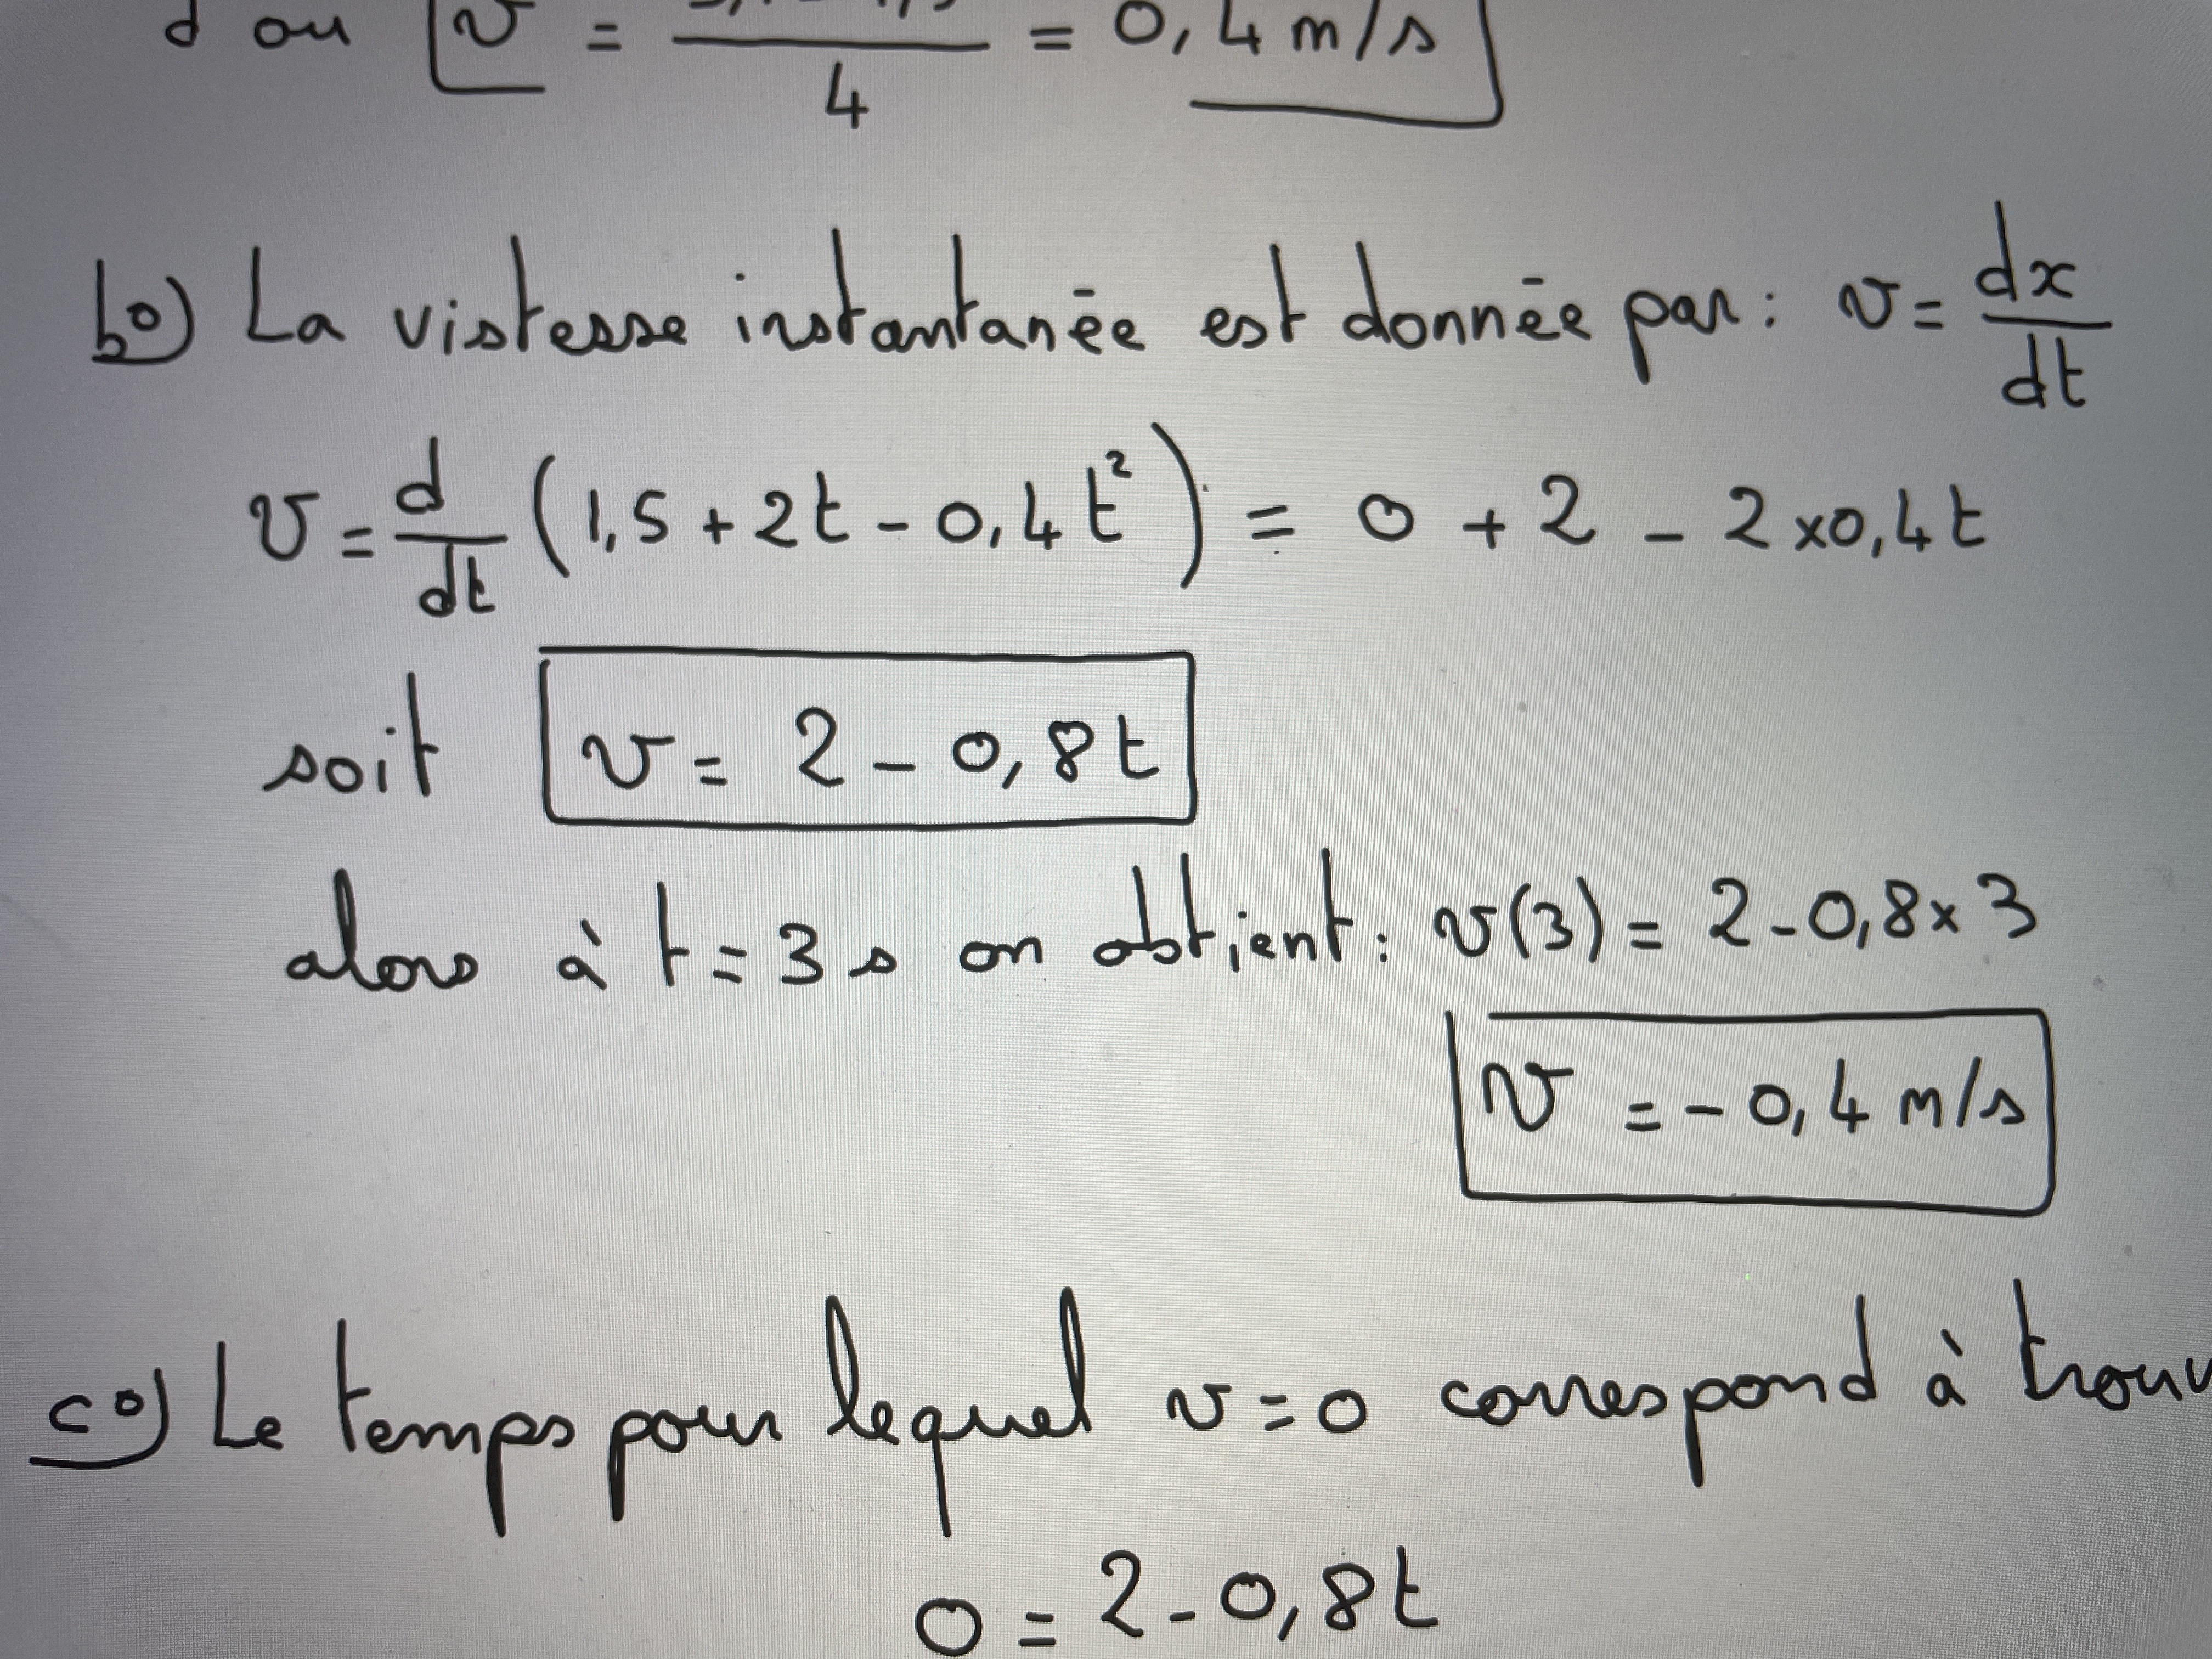 d ou v = / 4 = 0,4 m/s
b°) La vistesse instantanée est donnée par : v = dx/dt
v = d/dt (1,5 + 2t - 0,4t²) = 0 + 2 - 2×0,4t
soit v = 2 - 0,8t
alors à t = 3 s on obtient : v(3) = 2 - 0,8×3
v = - 0,4 m/s
c°) Le temps pour lequel v = 0 correspond à trouv
0 = 2 - 0,8t